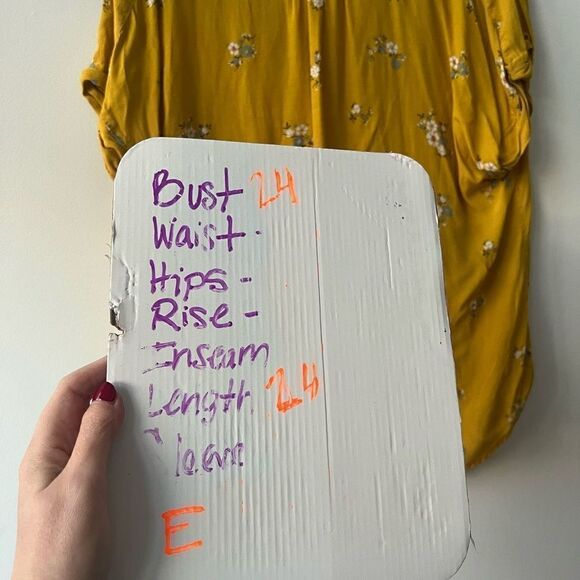 Bust 24
Waist -
Hips -
Rise -
Inseam
Length 24
Sleeve
E